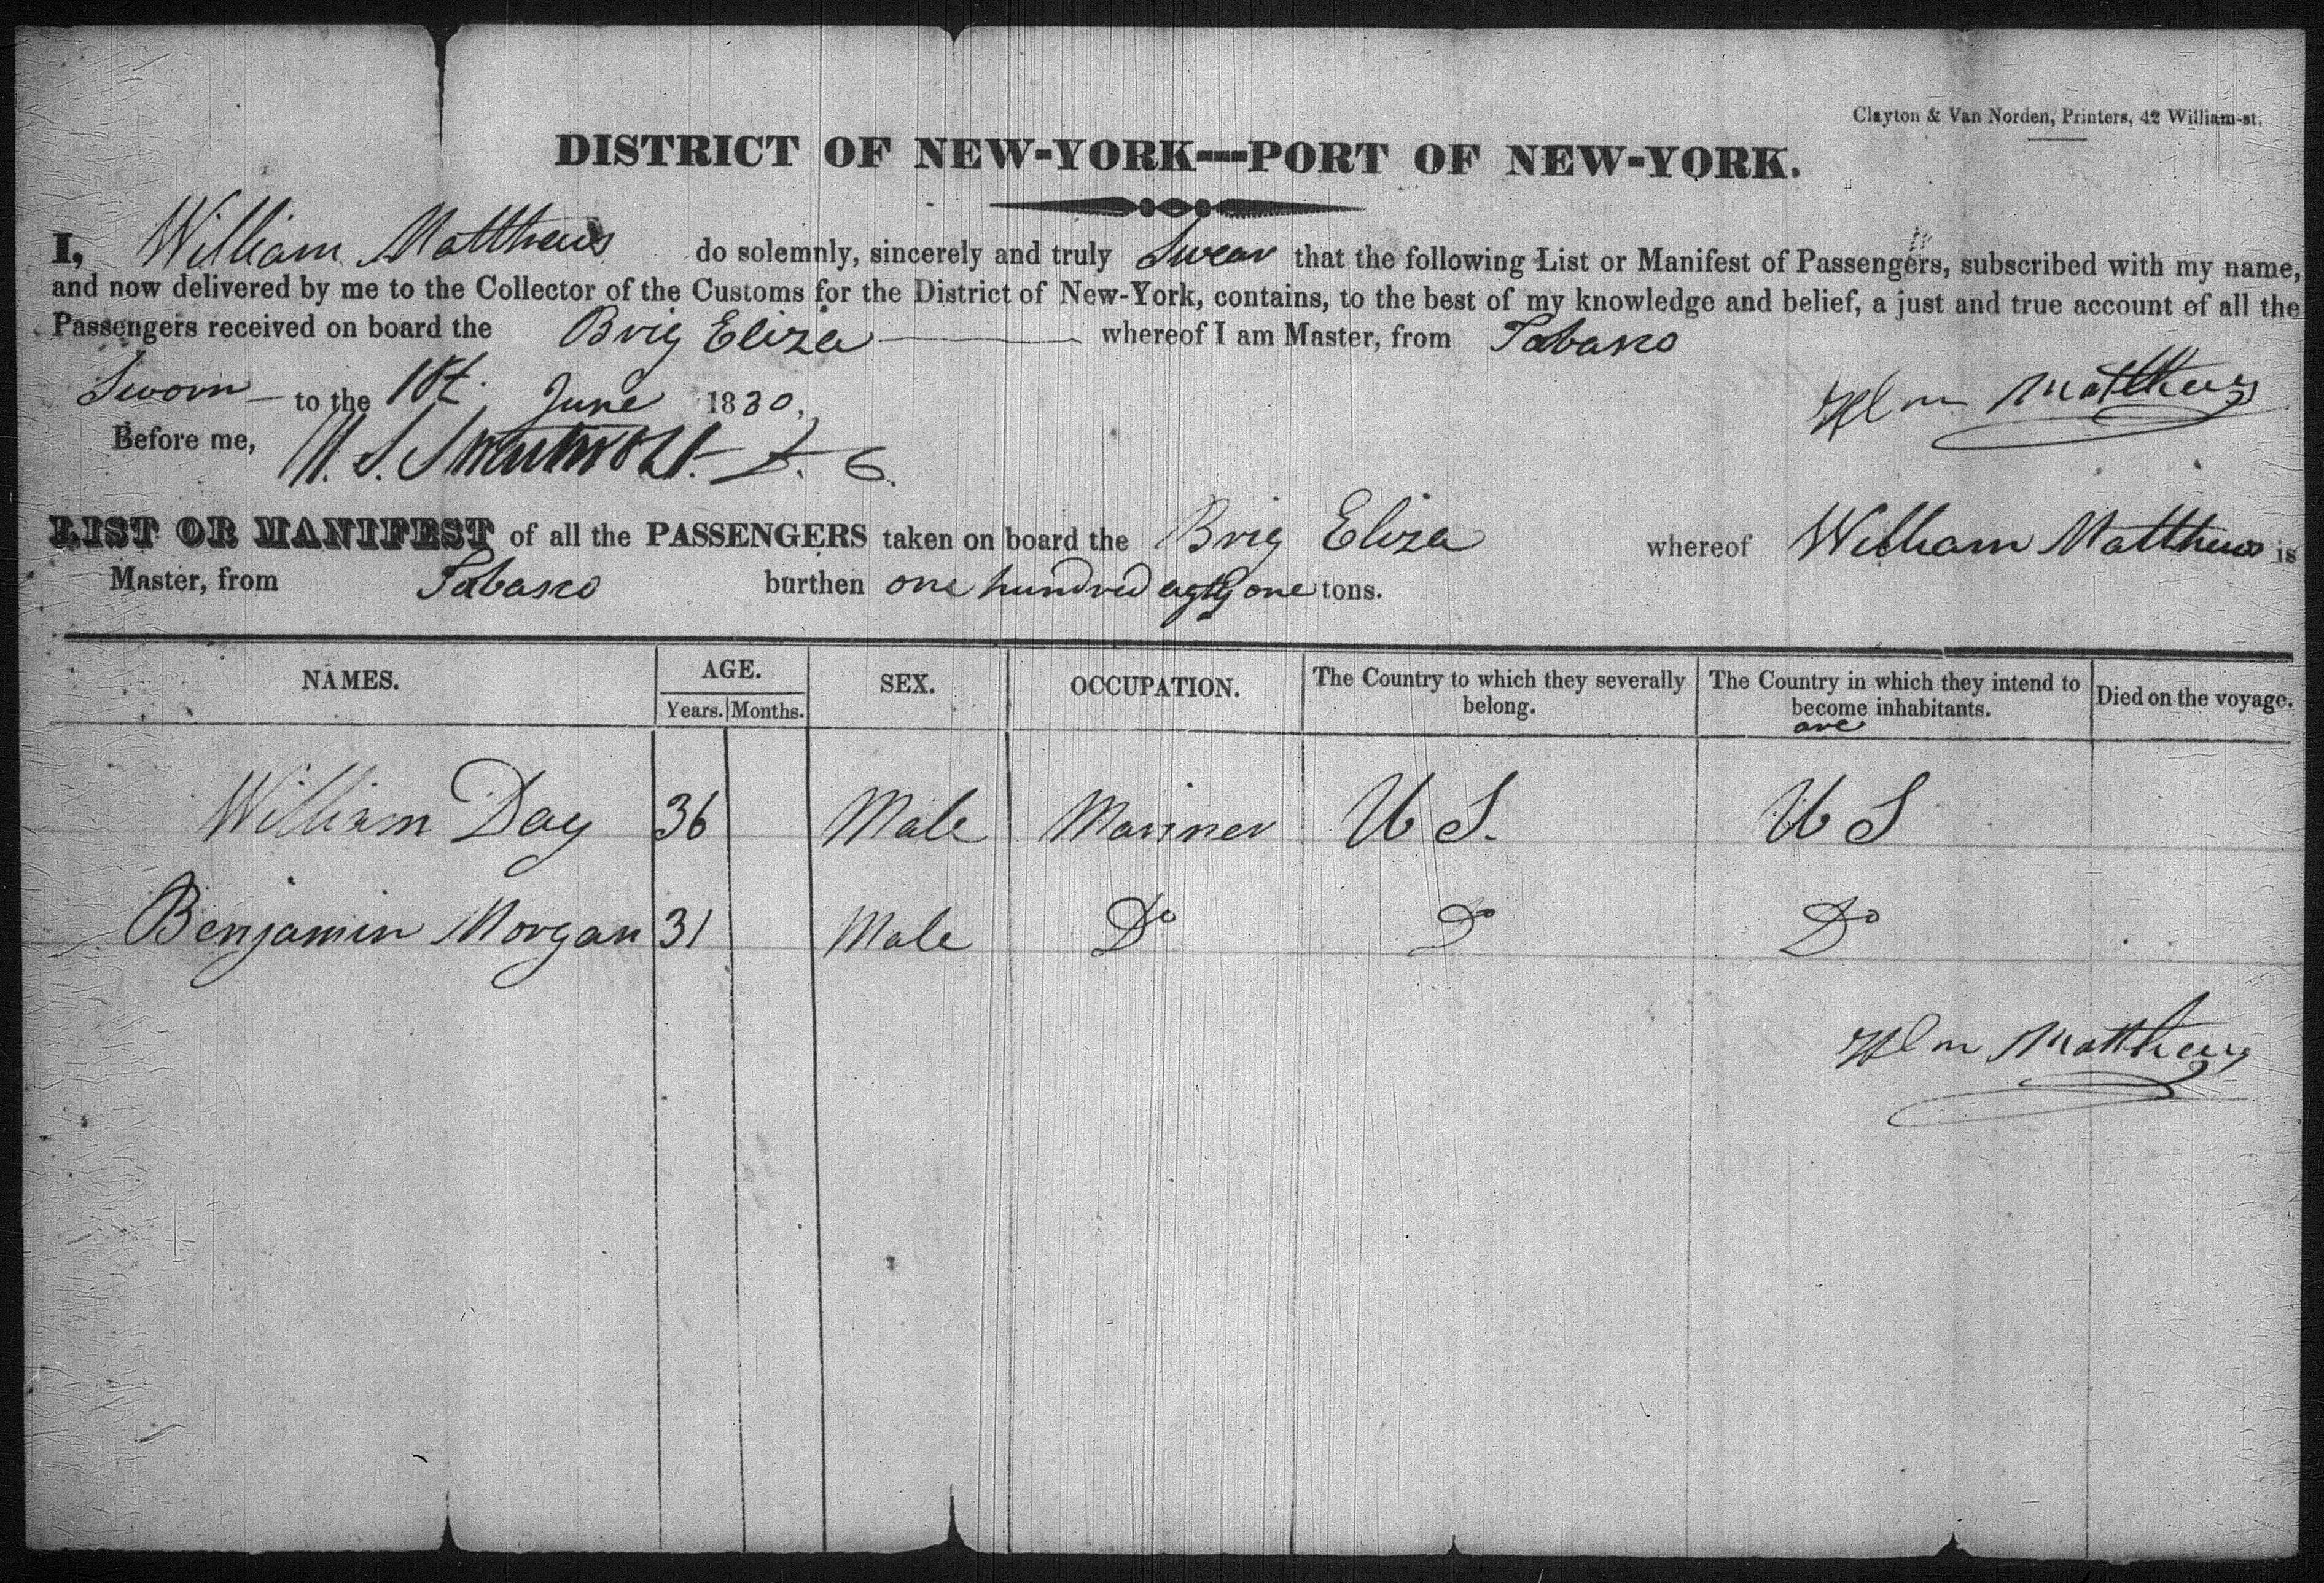 Clayton & Van Norden, Printers, 42 William-st.
DISTRICT OF NEW-YORK---PORT OF NEW-YORK.
I, William Matthews do solemnly, sincerely and truly Swear that the following List or Manifest of Passengers, subscribed with my name,
and now delivered by me to the Collector of the Customs for the District of New-York, contains, to the best of my knowledge and belief, a just and true account of all the
Passengers received on board the Brig Eliza whereof I am Master, from Tabasco
Sworn to the 1st June 1830.
Wm Matthews
Before me,
LIST OR MANIFEST of all the PASSENGERS taken on board the Brig Eliza whereof William Matthews is
Master, from Tabasco burthen one hundred eighty one tons.
NAMES. AGE. SEX. OCCUPATION. The Country to which they severally belong. The Country in which they intend to become inhabitants. are Died on the voyage.
Years. Months.
William Day 36 Male Mariner U S. U S
Benjamin Morgan 31 Male Do Do Do
Wm Matthews